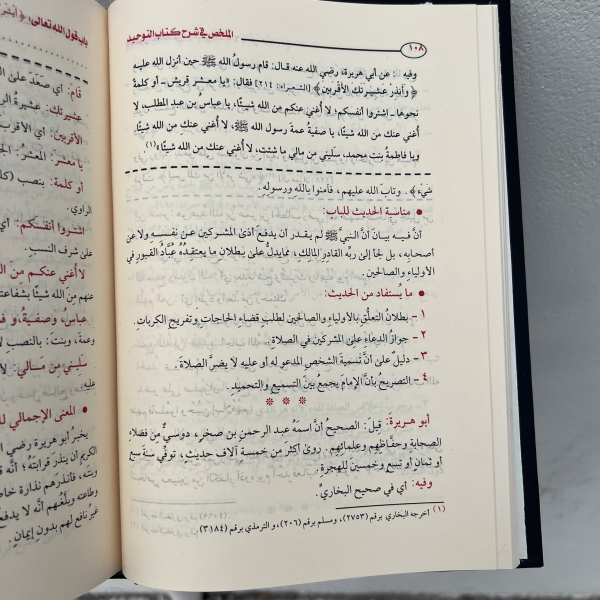 الملخص في شرح كتاب التوحيد
١٠٨
وفيه: عن أبي هريرة، رضي الله عنه قال: قام رسولُ الله ﷺ حين أنزل الله عليه
﴿وَأَنذِرْ عَشِيرَتَكَ الْأَقْرَبِينَ﴾ [الشعراء: ٢١٤] فقال: «يا معشر قريش ـ أو كلمةً
نحوها ـ اشتروا أنفسكم؛ لا أُغني عنكم من الله شيئًا، يا عباس بن عبد المطلب، لا
أُغني عنك من الله شيئًا، يا صفيةُ عمةَ رسول الله ﷺ، لا أُغني عنك من الله شيئًا.
ويا فاطمةُ بنت محمد، سليني من مالي ما شئتِ، لا أُغني عنك من الله شيئًا»(١)
شَيْءٌ﴾. وتابَ الله عليهم، فآمنوا باللهِ ورسولِهِ.
● مناسبة الحديث للباب:
أنَّ فيـه بيـانَ أنَّ النبيَّ ﷺ لم يقـدر أن يدفـعَ أذىٰ المشركـين عن نفسِـهِ ولا عن
أصحابِه، بل لجأ إلىٰ ربِّه القادرِ المالكِ، مما يدلُّ علىٰ بطلان ما يعتقِدُهُ عُبَّادُ القبورِ في
الأولياءِ والصالحين.
● ما يُستفاد من الحديث:
١ ـ بطلانُ التعلُّقِ بالأولياءِ والصالحين لطلبِ قضاءِ الحاجاتِ وتفريج الكرباتِ.
٢ ـ جوازُ الدعاءِ علىٰ المشركين في الصلاةِ.
٣ ـ دليلٌ علىٰ أنَّ تسميةَ الشخصِ المدعوِ له أو عليه لا يضرُّ الصلاةَ.
٤ ـ التصريحُ بأنَّ الإمامَ يجمعُ بينَ التسميعِ والتحميدِ.
* * *
أبو هريرة: قيل: الصحيحُ أنَّ اسمَهُ عبد الرحمن بن صخرٍ، دوسيٌّ من فضلاءِ
الصحابةِ وحفَّاظهم وعلمائِهم. روىٰ أكثرَ من خمسةِ آلاف حديثٍ، توفِّي سنةَ سبعٍ
أو ثمانٍ أو تسعٍ وخمسين للهجرةِ.
وفيه: أي في صحيح البخاريِّ.
(١) أخرجه البخاري برقم (٢٧٥٣)، ومسلم برقم (٢٠٦)، و الترمذي برقم (٣١٨٤)
باب قول الله تعالى: ﴿
قام: أي صعَدَ علىٰ
عشيرتك: عشيرةُ
الأقربين: أي الأقرب
يا معشر: المعشرُ:
أو كلمة: بنصب
الراوي.
اشتروا أنفسكم: أي
علىٰ شرف النسبِ.
لا أغني عنكم من
عنهم مِن الله شيئًا بشفاعته
عباسُ، وصفيةُ، و
وعمةَ، وبنتَ: بالنصبِ
سليني من مـالي:
عليه.
● المعنى الإجمالي
يخبرُ أبو هريرة رضي
الكريم أن ينذرَ قرابتَهُ؛ أنَّه
وبنتَه، فأنذرَهم نذارة خاصة
وطاعته وبلَّغهم أنَّه لا يدفع
غير نافع لهم بدون إيمان.